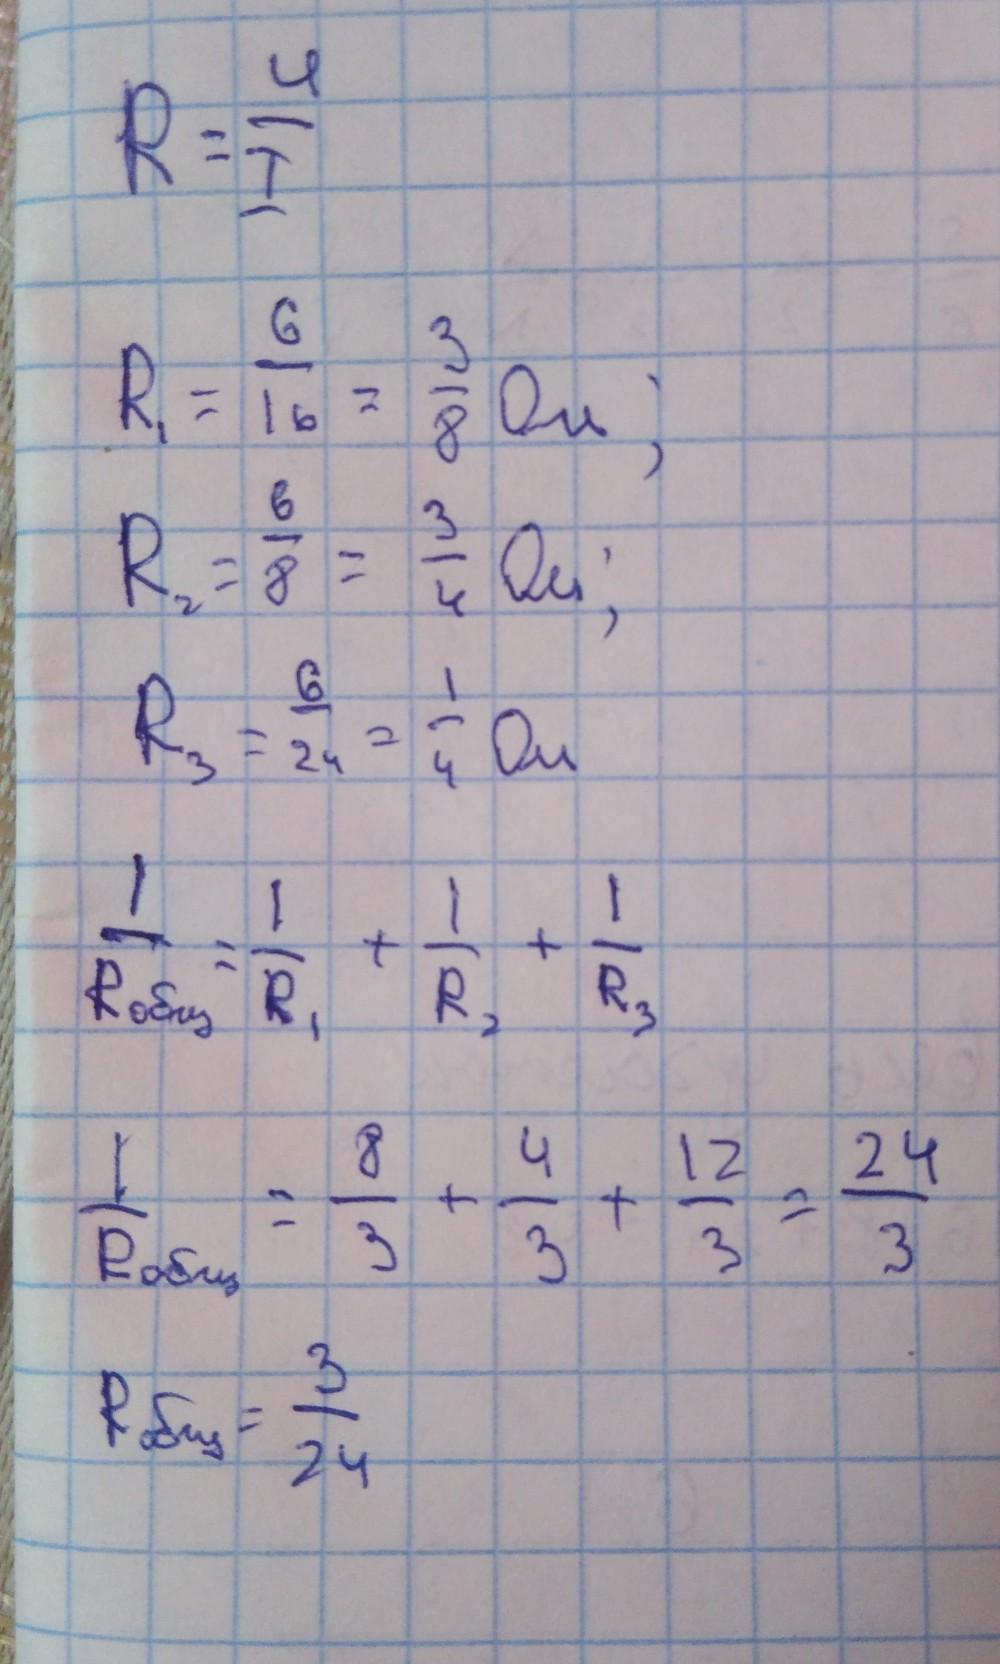 R = U/I
R₁ = 6/16 = 3/8 Ом;
R₂ = 6/8 = 3/4 Ом;
R₃ = 6/24 = 1/4 Ом
1/Rобщ = 1/R₁ + 1/R₂ + 1/R₃
1/Rобщ = 8/3 + 4/3 + 12/3 = 24/3
Rобщ = 3/24